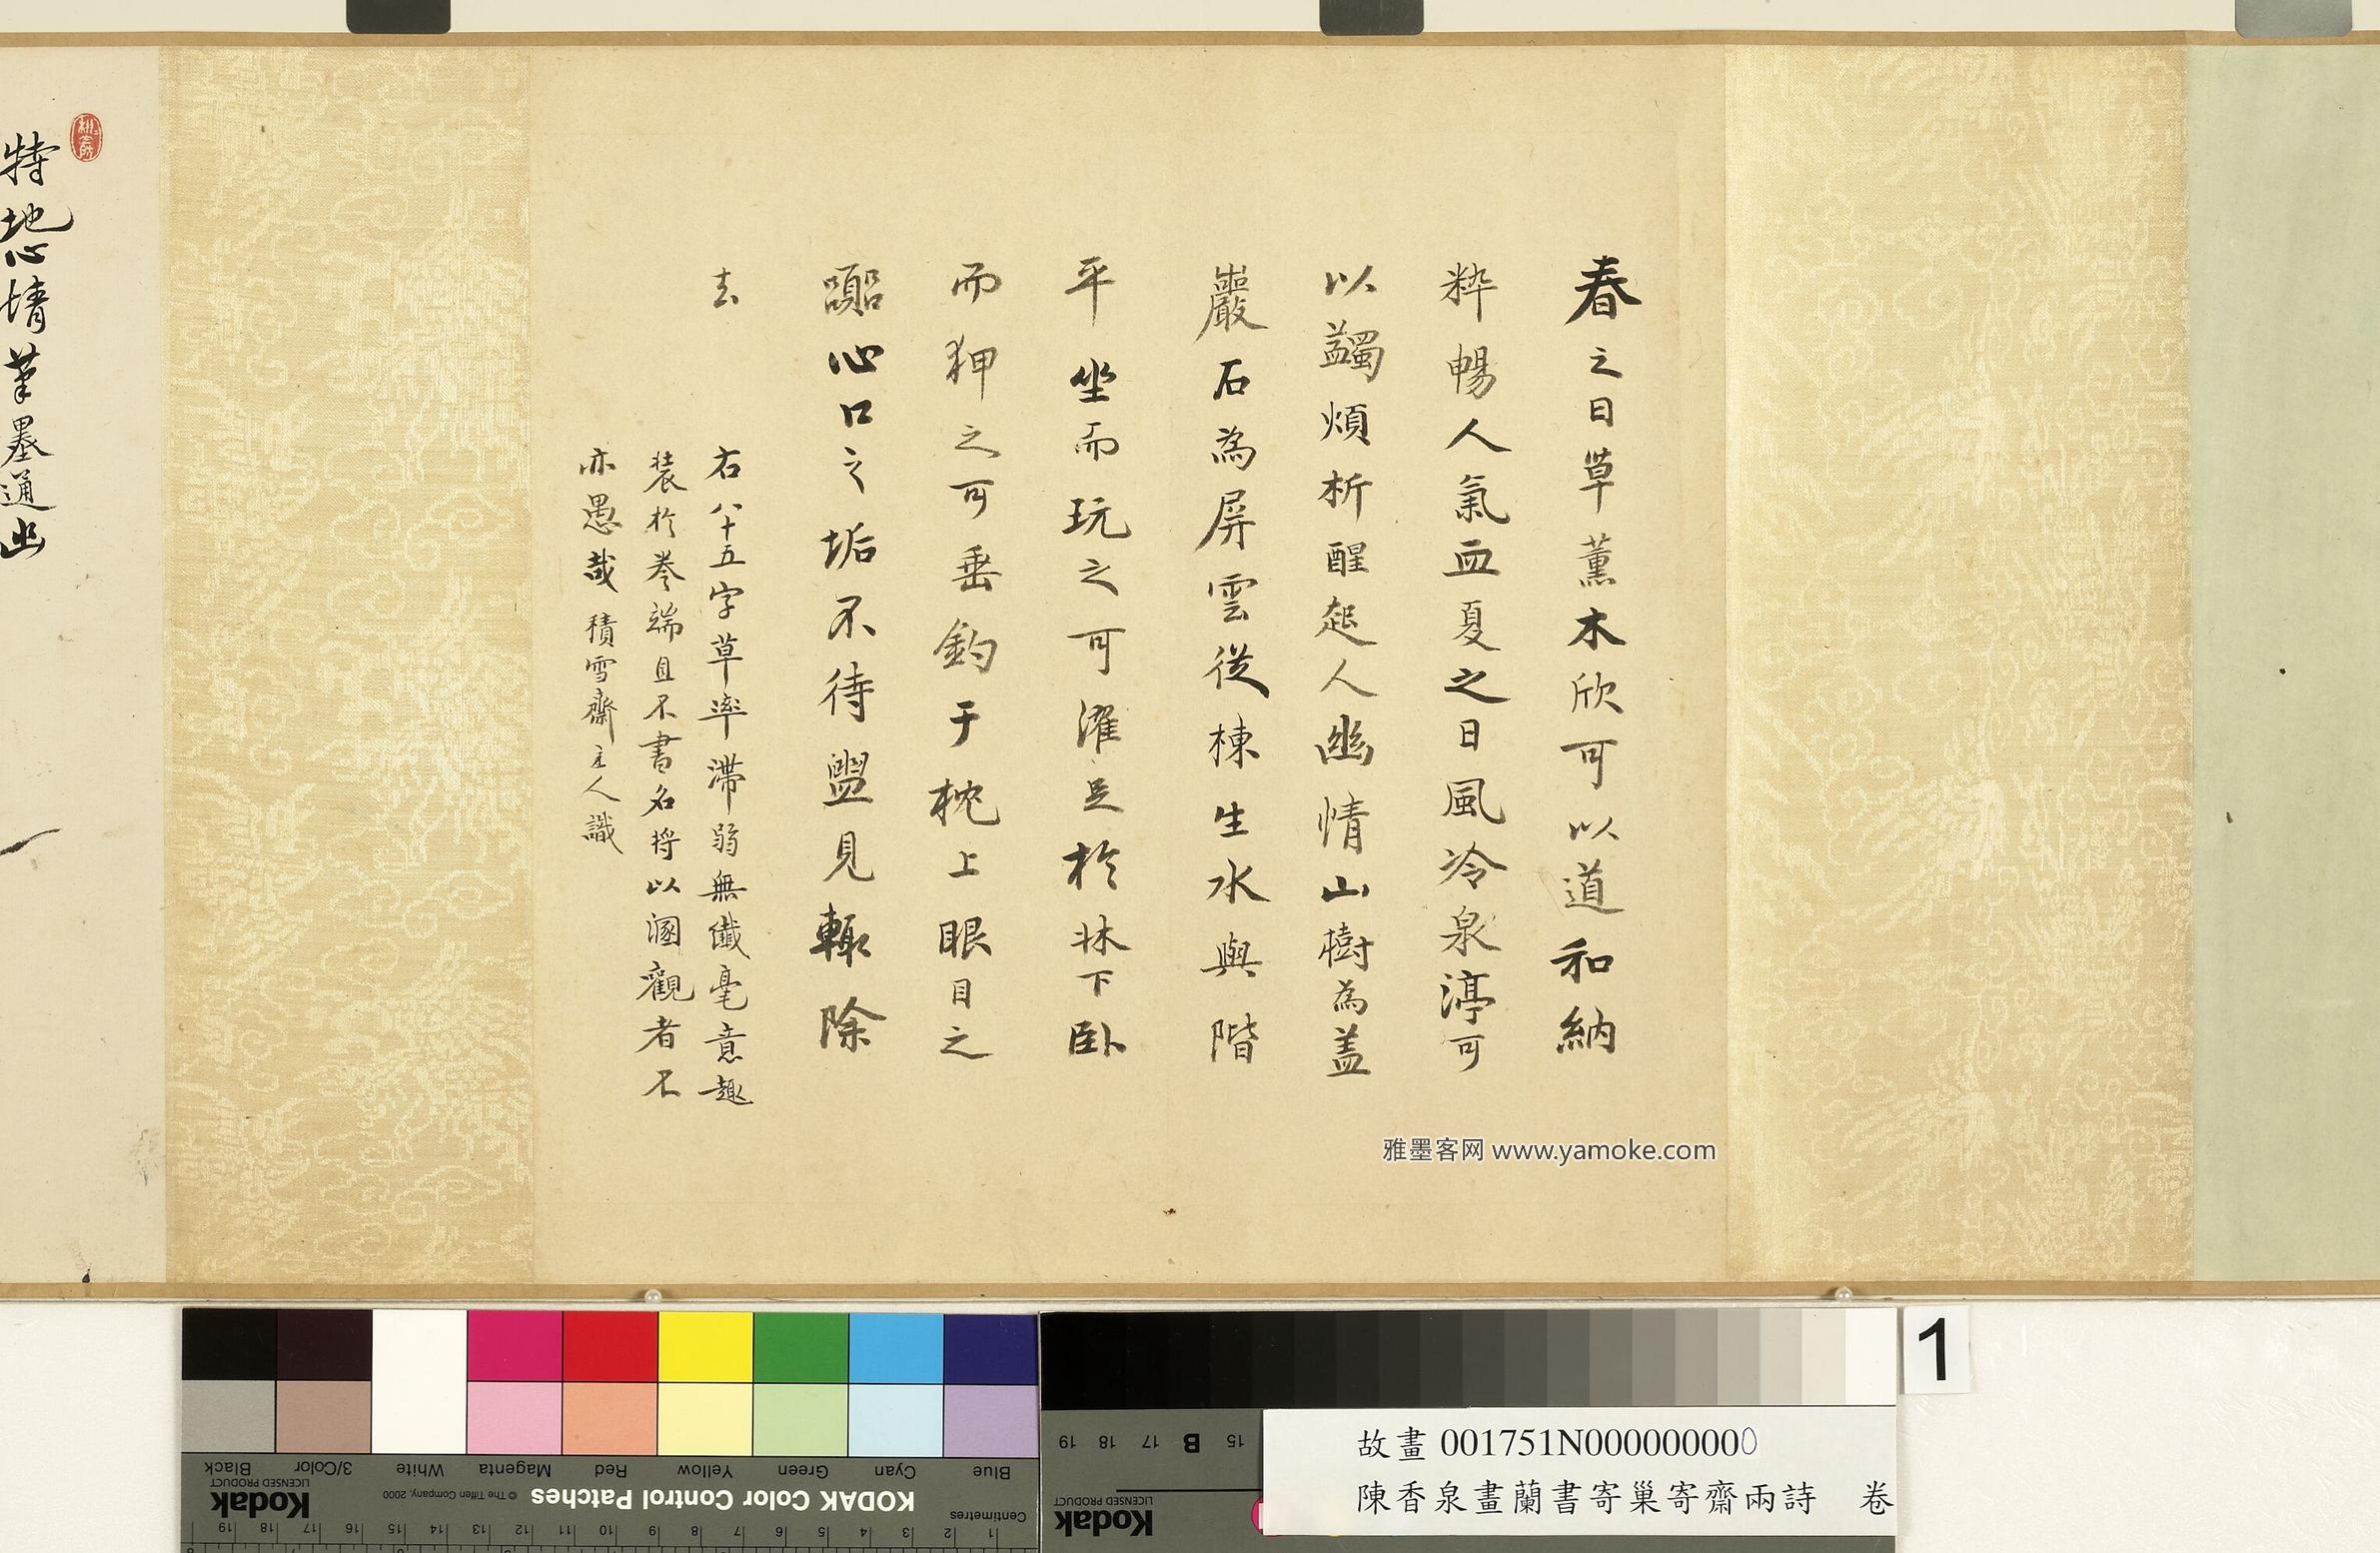 春之日草薰木欣可以道和納
粹暢人氣血夏之日風冷泉渟可
以蠲煩析酲起人幽情山樹為蓋
巖石為屏雲從棟生水與階
平坐而玩之可濯足於牀下臥
而狎之可垂釣于枕上眼目之
嚚心口之垢不待盥見輒除
去
右八十五字草率滯弱無纖毫意趣
装於卷端且不書名將以溷觀者不
亦愚哉 積雪齋主人識
特地心情筆墨通幽
雅墨客网 www.yamoke.com
1
故畫 001751N000000000
陳香泉畫蘭書寄巢寄齋兩詩 卷
Blue Cyan Green Yellow Red Magenta White 3/Color Black
KODAK Color Control Patches
© The Tiffen Company, 2000
Kodak
LICENSED PRODUCT
Centimetres
1 2 3 4 5 6 7 8 9 10 11 12 13 14 15 16 17 18 19
15 B 17 18 19
Kodak
LICENSED PRODUCT